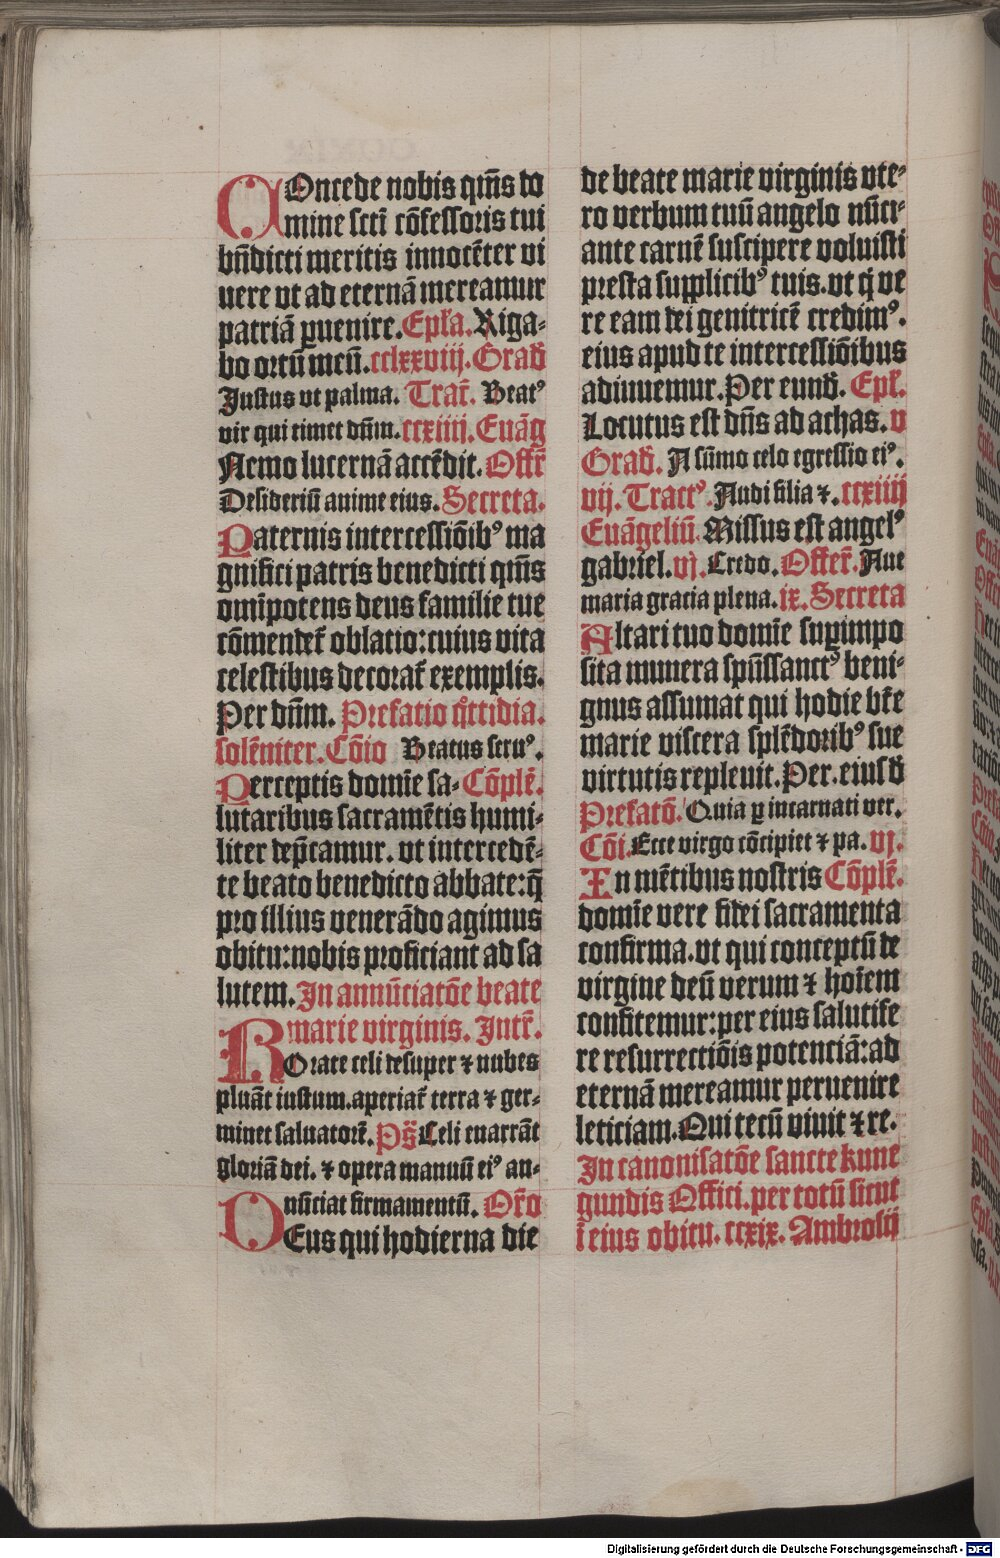 COncede nobis qm̄s do
mine scti cōfessoris tui
bn̄dicti meritis innocēter vi
uere vt ad eternā mereamur
patriā ꝑuenire. Epľa. Riga-
bo ortū meū. cclxxviij. Grad̄
Justus vt palma. Trac̄t. Beatꝰ
vir qui timet dn̄m. ccxiiij. Euāg
Nemo lucernā accēdit. Offr̄
Desideriū anime eius. Secreta.
Paternis intercessiōibꝰ ma
gnifici patris benedicti qm̄s
omīpotens deus familie tue
cōmendet̄ oblatio: cuius vita
celestibus decorat̄ exemplis.
Per dn̄m. Prefatio q̄ttidia.
solēniter. Cōio Beatus seruꝰ.
Perceptis domīe sa- Cōplē.
lutaribus sacramētis humi-
liter dep̄camur. vt intercedē-
te beato benedicto abbate: q̄
pro illius venerādo agimus
obitu: nobis proficiant ad sa
lutem. In annūciatōe beate
marie virginis. Intr̄.
ROrate celi desuper ⁊ nubes
pluāt iustum. aperiat̄ terra ⁊ ger-
minet saluatorē. Ps̄ Celi enarrāt
gloriā dei. ⁊ opera manuū eiꝰ an-
nūciat firmamentū. Or̄o
DEus qui hodierna die
de beate marie virginis vte-
ro verbum tuū angelo nūci-
ante carnē suscipere voluisti
presta supplicibꝰ tuis. vt q̄ ve
re eam dei genitricē credimꝰ.
eius apud te intercessiōibus
adiuuemur. Per eund̄. Epľ.
Locutus est dn̄s ad achas. v
Grad̄. A sūmo celo egressio eiꝰ.
vij. Tractꝰ. Audi filia ⁊. ccxiiij
Euāgeliū. Missus est angelꝰ
gabriel. vj. Credo. Offer̄. Aue
maria gracia plena. ix. Secreta
Altari tuo domīe suꝑimpo
sita munera spūssanctꝰ beni-
gnus assumat qui hodie bt̄e
marie viscera splēdoribꝰ sue
virtutis repleuit. Per. eiusd̄
Prefatō. Quia ꝑ incarnati ver.
Cōi. Ecce virgo cōcipiet ⁊ pa. vj.
In mētibus nostris Cōplē.
domīe vere fidei sacramenta
confirma. vt qui conceptū de
virgine deū verum ⁊ hoīem
confitemur: per eius salutife
re resurrectiōis potenciā: ad
eternā mereamur peruenire
leticiam. Qui tecū viuit ⁊ re.
In canonisatōe sancte kune
gundis Offici. per totū sicut
ī eius obitu. ccxix. Ambrosij
Digitalisierung gefördert durch die Deutsche Forschungsgemeinschaft - DFG